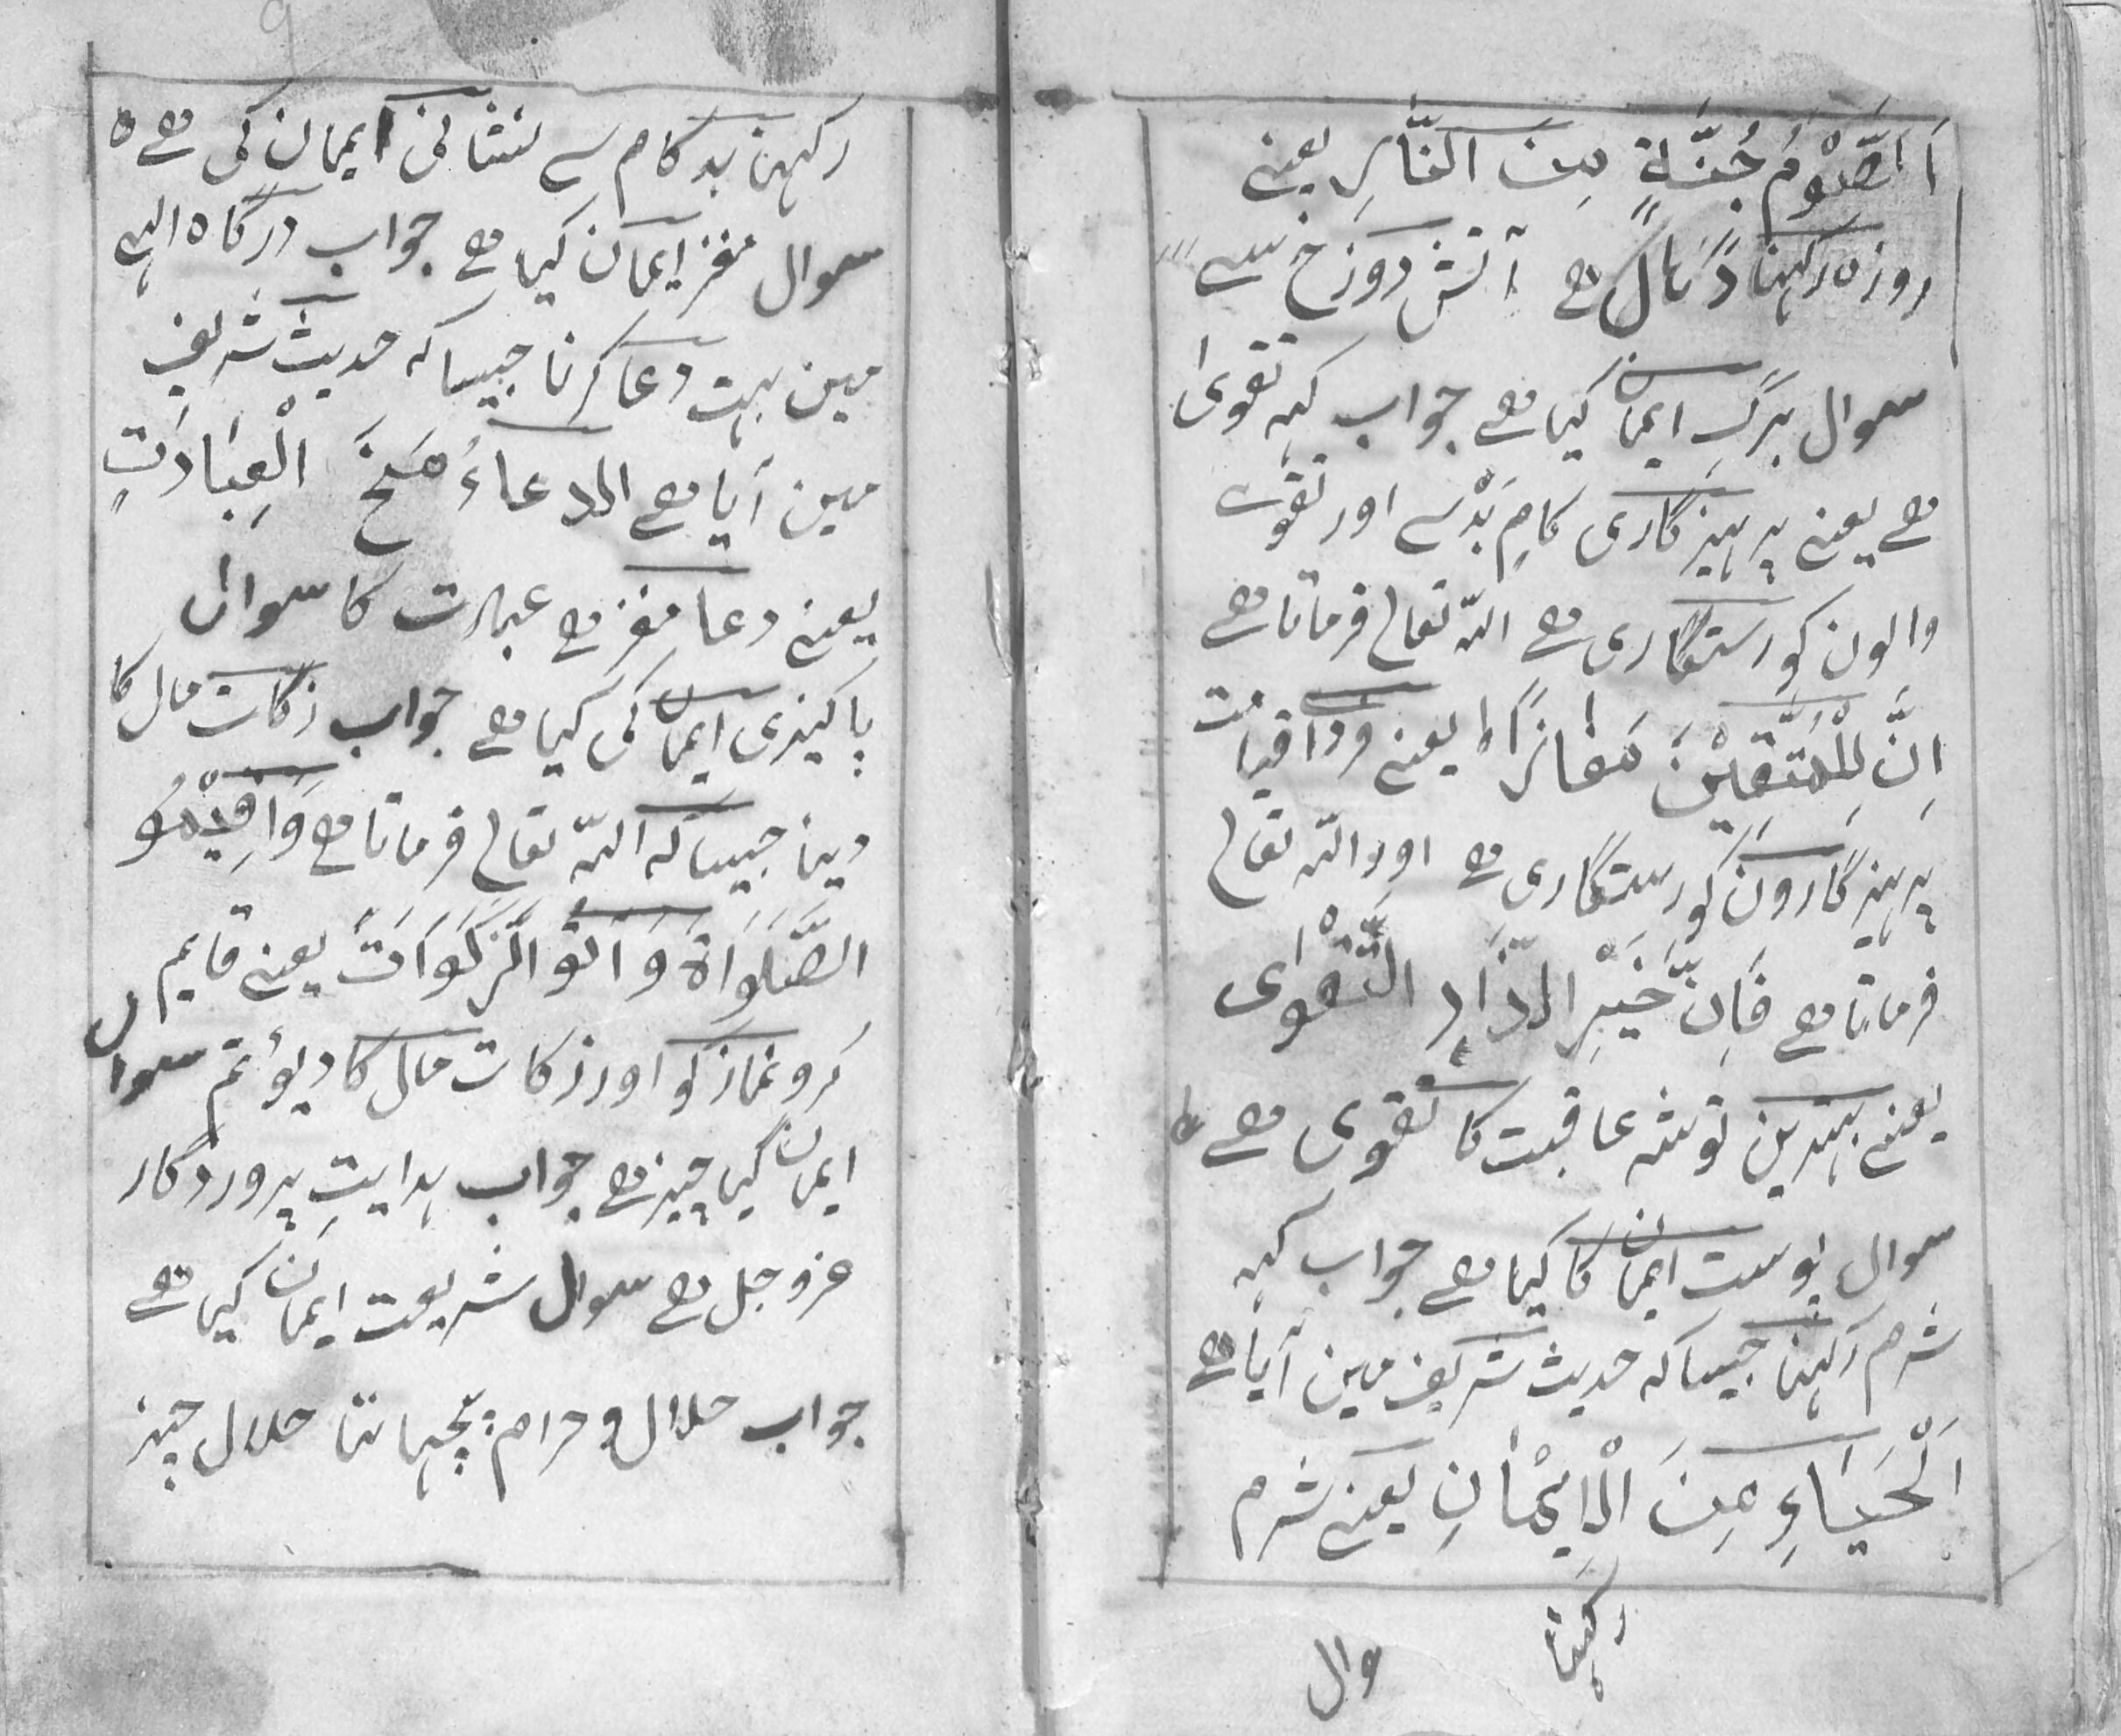 اَلصَّوْمُ جُنَّةٌ مِنَ النَّارِ یعنے
روزہ رکہنا ڈھال ہے آتش دوزخ سے
سوال برگِ ایمان کیا ہے جواب کہہ تقویٰ
ہے یعنے پرہیزگاری کامِ بَدْ سے اور تقوے
والون کو رستگاری ہے اللّہ تعالٰی فرماتا ہے
اِنَّ لِلْمُتَّقِیْنَ مَفَازًا یعنے فردا قیامت
پرہیزگارون کو رستگاری ہے اور اللّہ تعالٰی
فرماتا ہے فَاِنَّ خَیْرِ الزَّادِ التَّقْوٰی
یعنے بہترین توشہ عاقبت کا تقوی ہے
سوال پوست ایمان کا کیا ہے جواب کہہ
شرم رکہنا جیسا کہ حدیث شریف مین آیا ہے
اَلْحَیَاءِ مِنَ الْاِیْمَانِ یعنے شرم
رکہنا
وال
رکہنا بد کام سے نشانی ایمان کی ہے
سوال مغز ایمان کیا ہے جواب درگاہ الہی
مین بہت دعا کرنا جیسا کہ حدیث شریف
مین آیا ہے الدعاءُ مَخَّ الْعِبَادَتِ
یعنے دعا مغز ہے عبادت کا سوال
پاکیزی ایمان کی کیا ہے جواب زکات مال کا
دینا جیسا کہ اللّہ تعالٰی فرماتا ہے وَاَقِیْمُو
الصَّلَوَاةَ وَاٰتُو الزَّکَوَاتَ یعنے قایم
کرو نماز کو اور زکات مال کا دیوٴ تم سوال
ایمان کیا چیز ہے جواب ہدایتِ پروردگار
عزوجل ہے سوال شریعت ایمان کیا ہے
جواب حلال و حرام پچہاننا حلال چیز